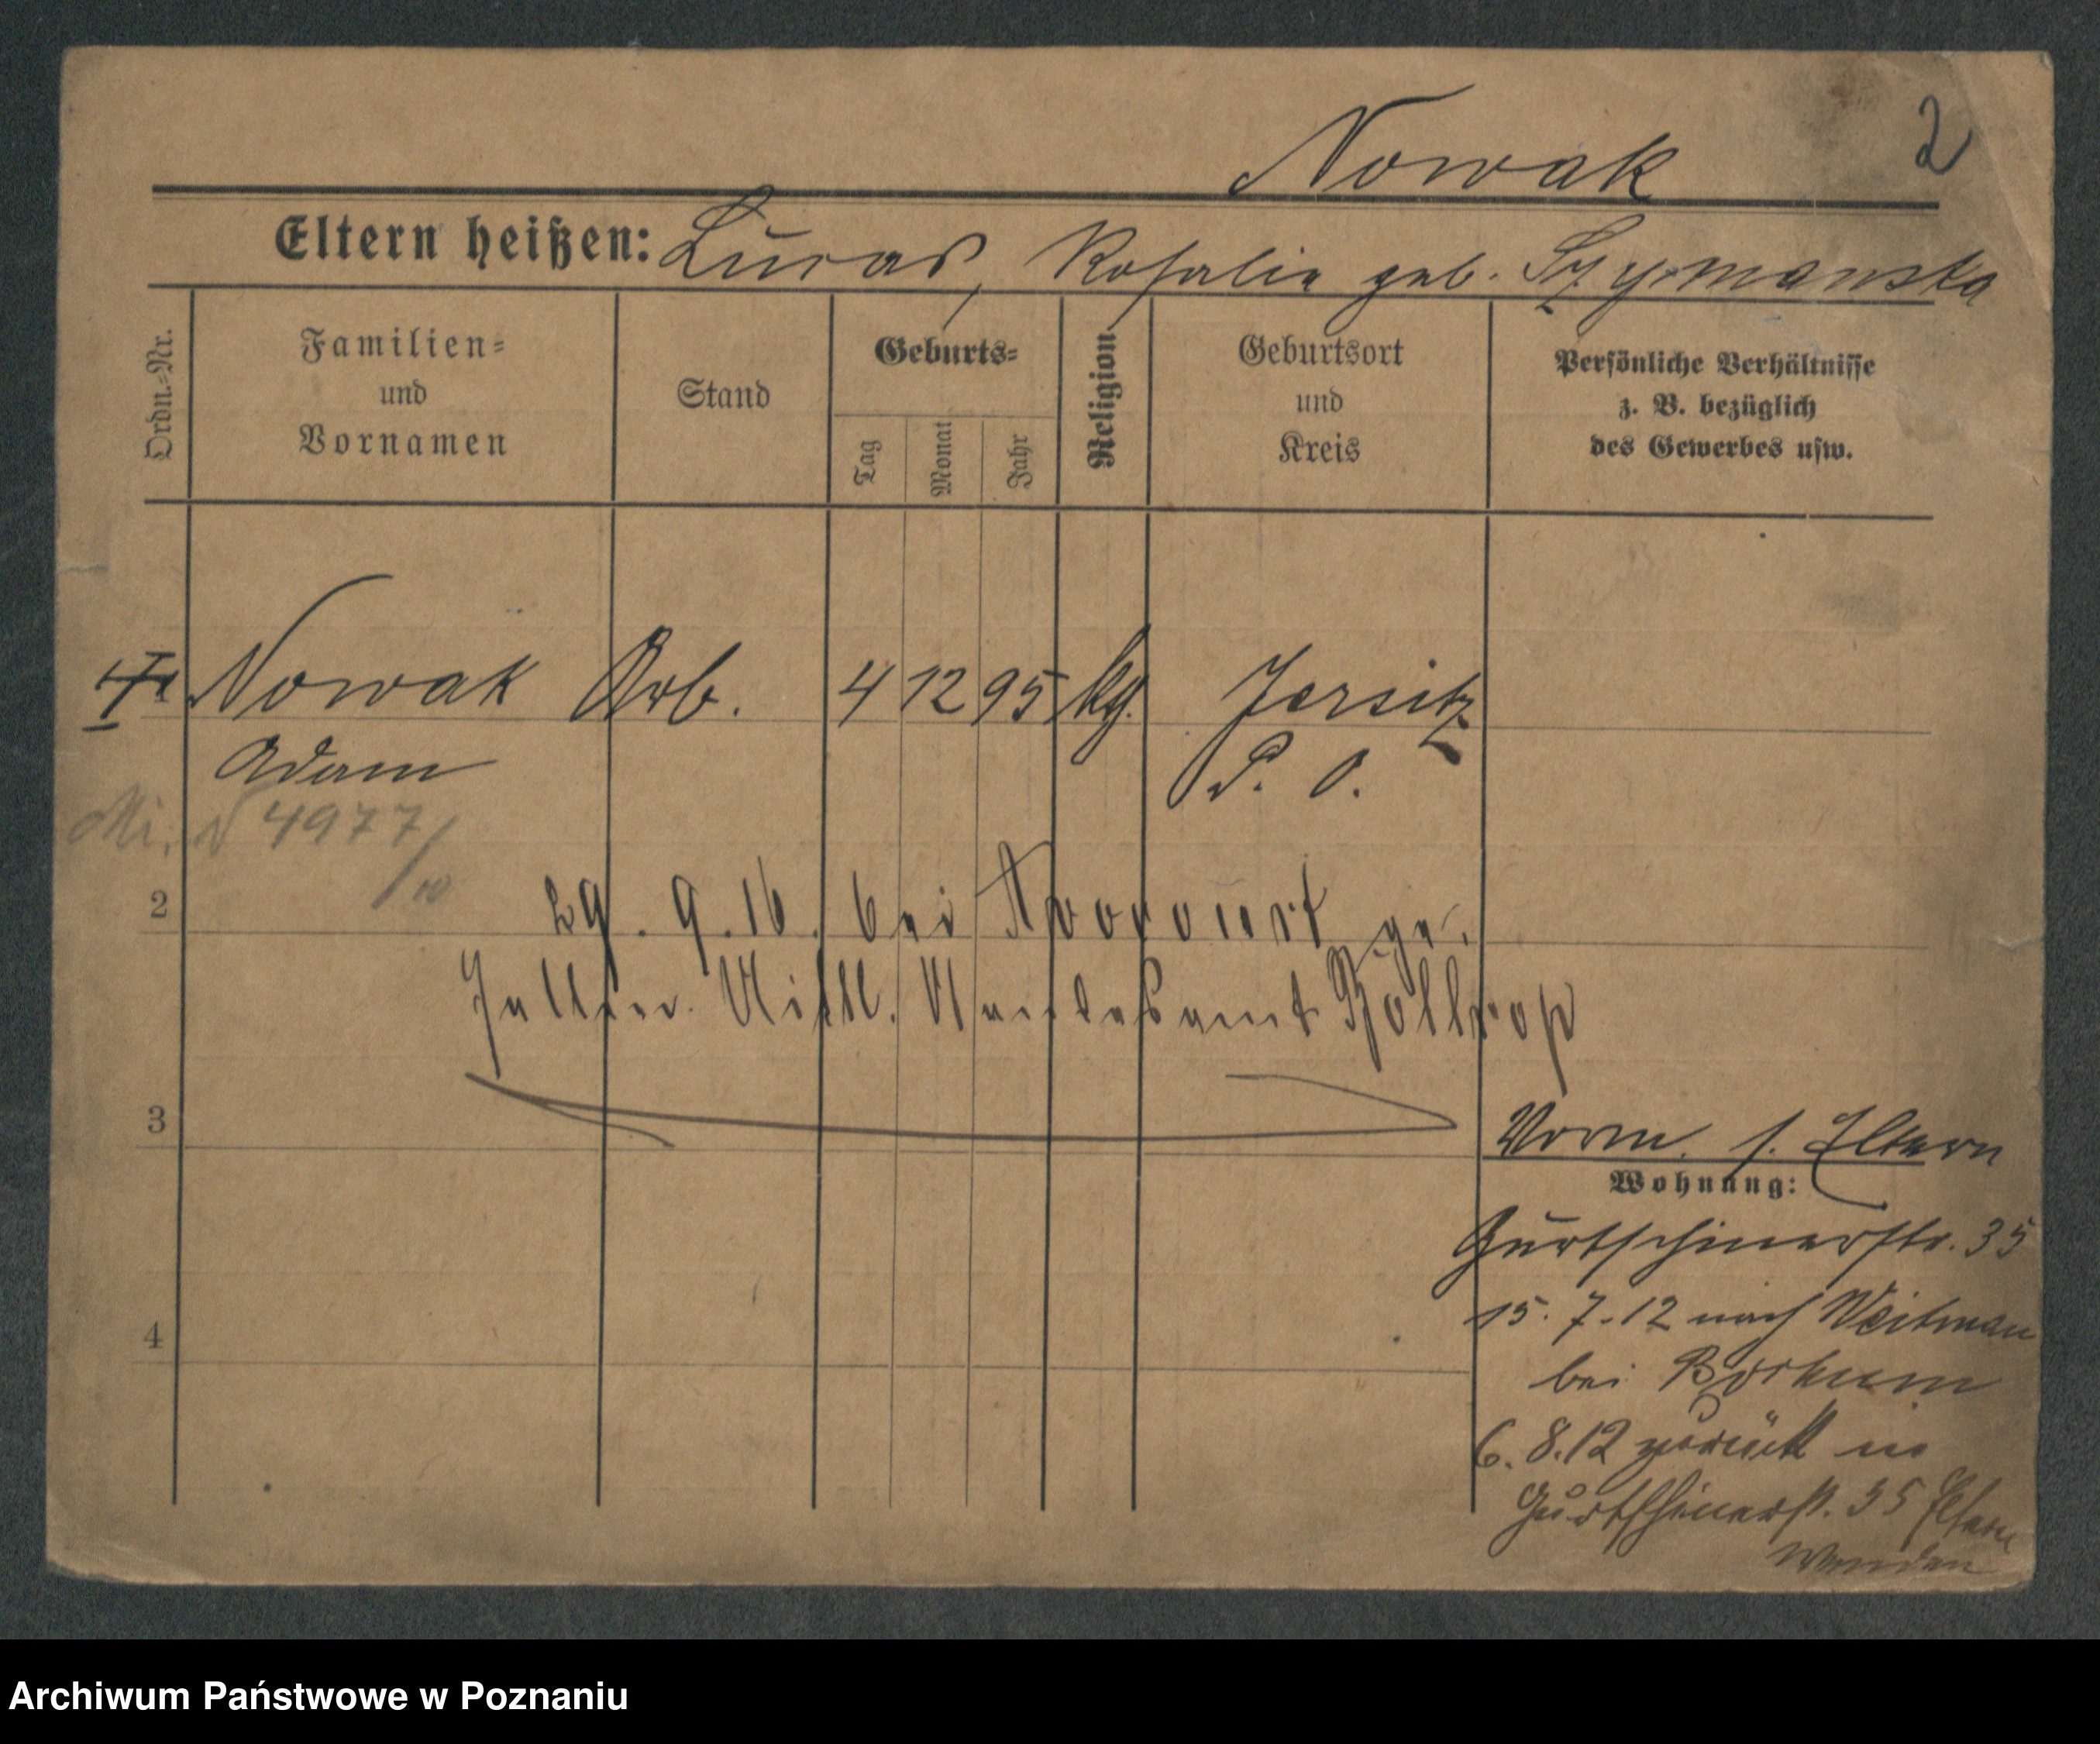 Nowak 2
Eltern heißen: Lucas, Rosalie geb. Szymanska
Ordn.-Nr.
Familien-
und
Vornamen
Stand
Geburts-
Tag
Monat
Jahr
Religion
Geburtsort
und
Kreis
Persönliche Verhältnisse
z. B. bezüglich
des Gewerbes usw.
1 Nowak Arb. 4 12 95 kg. Jersitz
Adam P. O.
Mi. N 4977/10
2
29.9.16. bei Avocourt ge-
fallen. Mittl. Standesamt Bottrop
3
4
Vorm. s. Eltern
Wohnung:
Gurtschinerstr. 35
15.7.12 nach Weitmar
bei Bochum
6.8.12 zurück in
Gurtschinerst. 35 Eltern